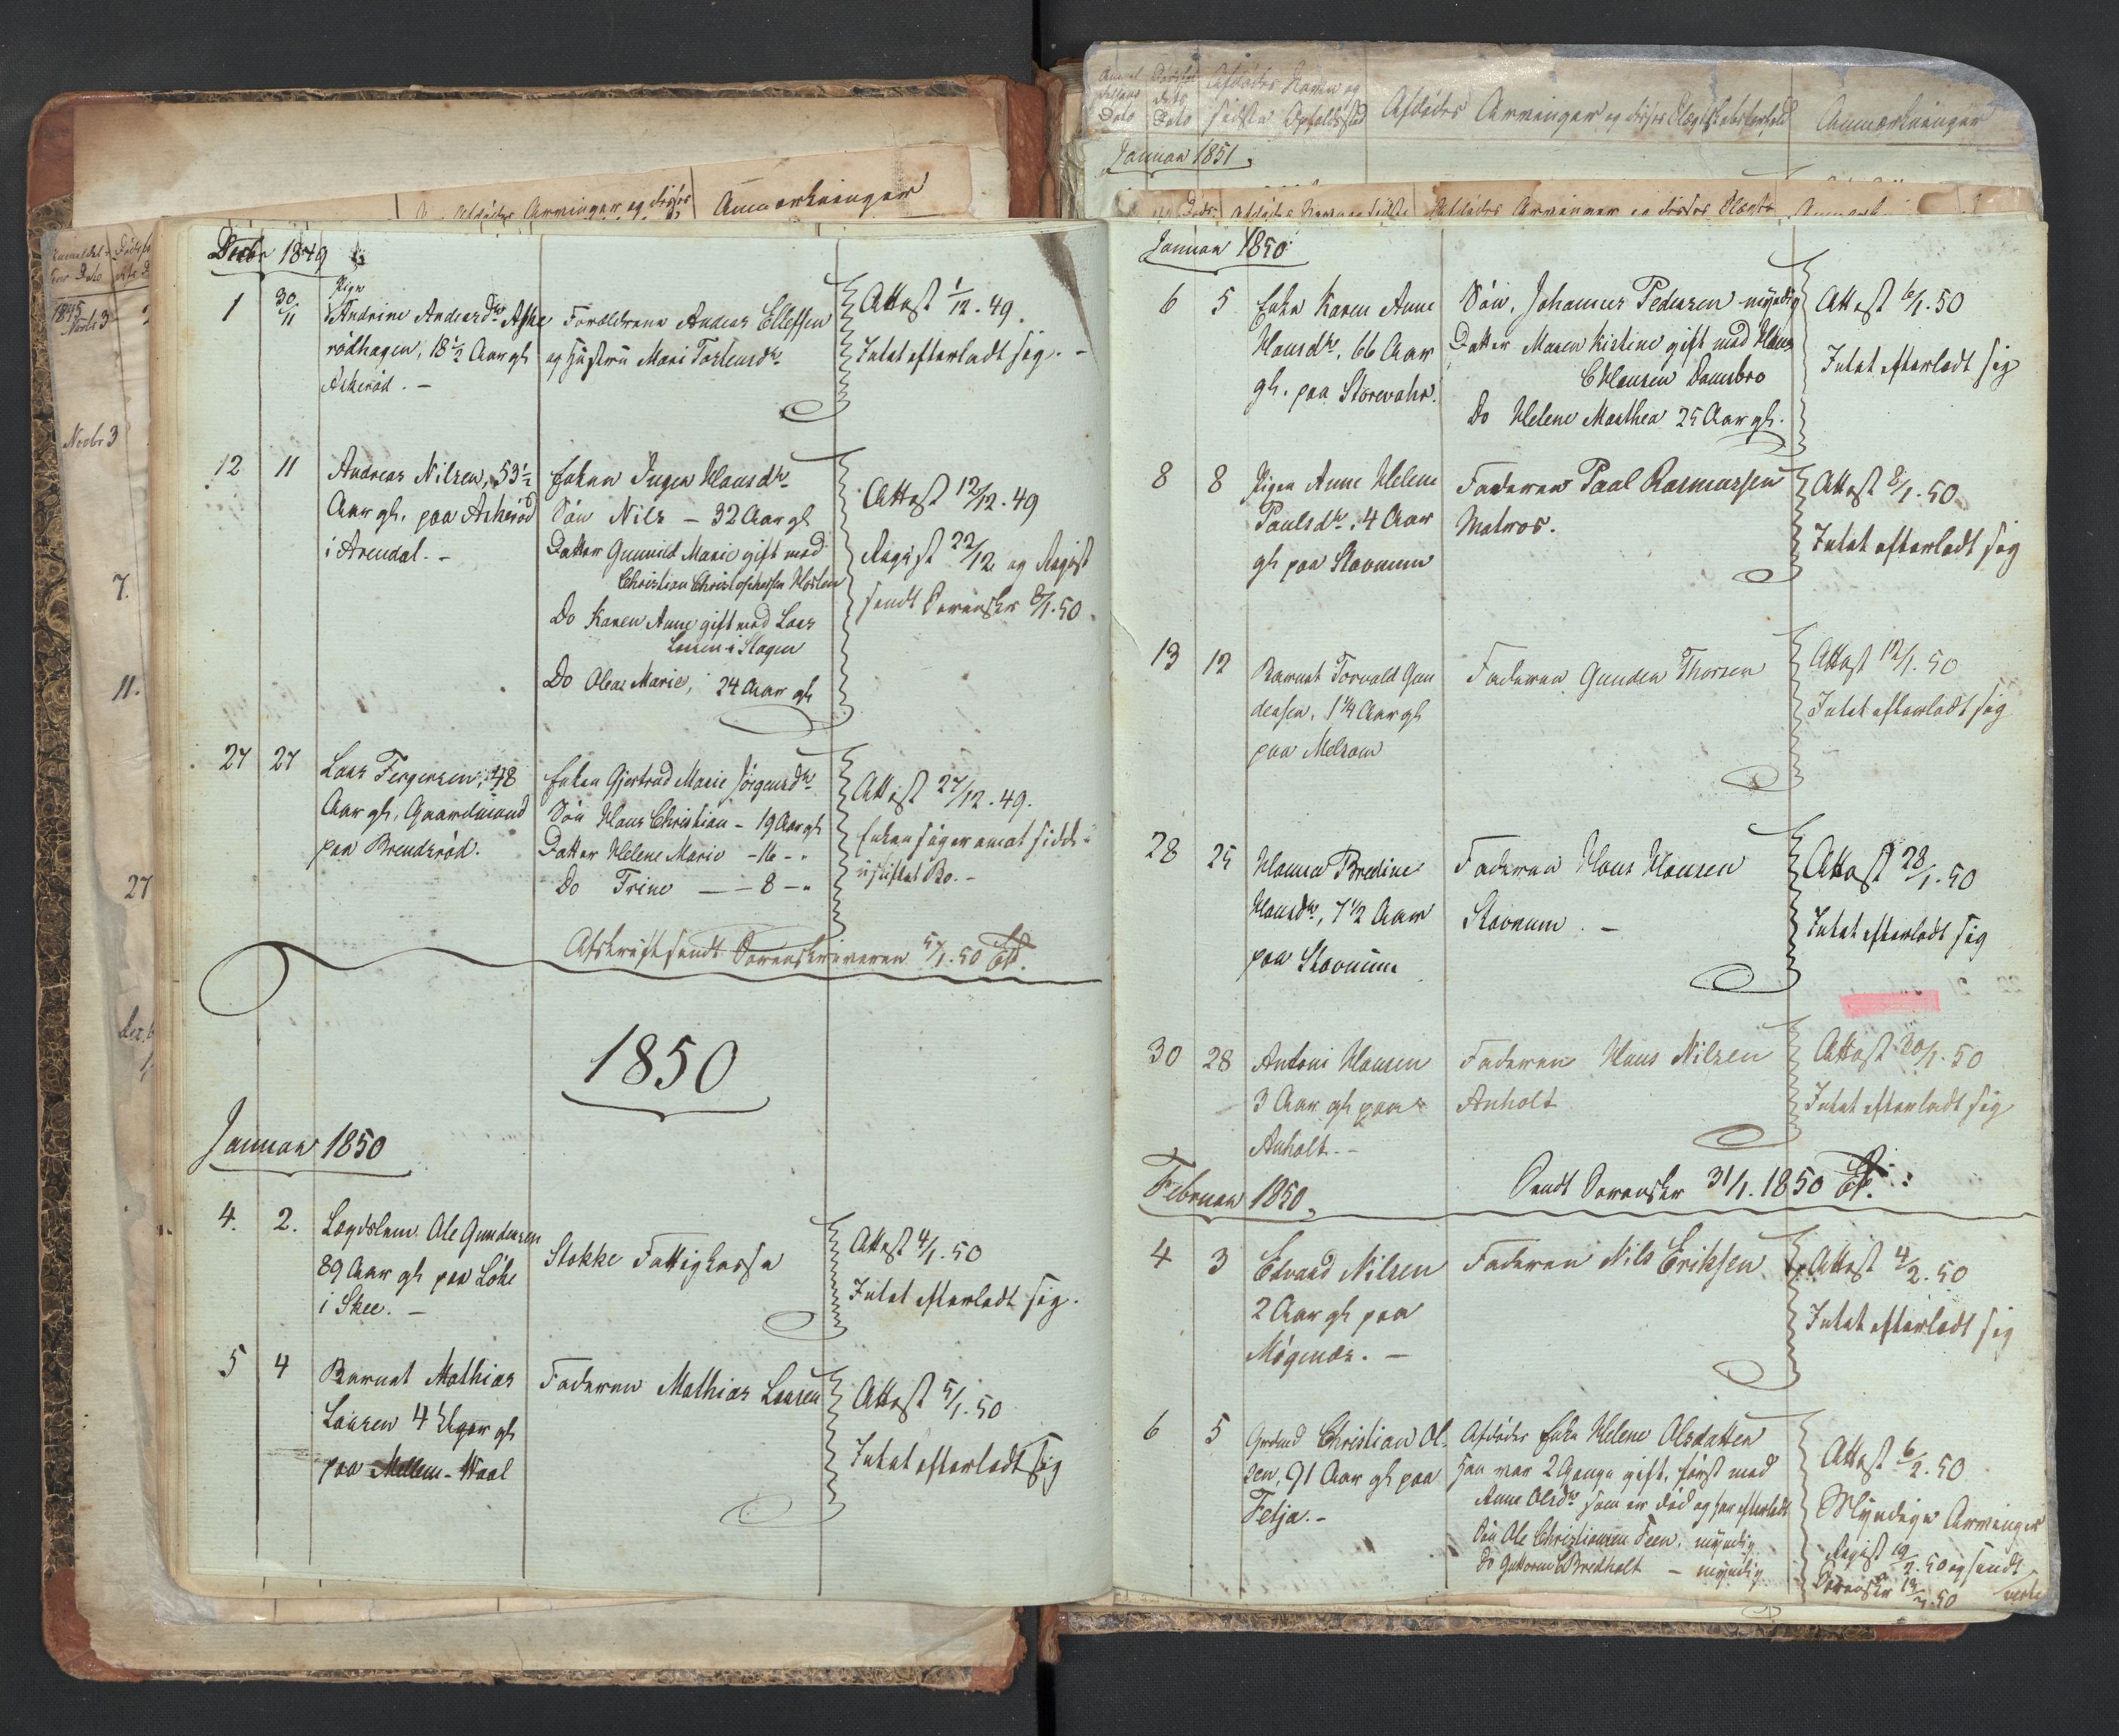 Afdødes Arvinger og disses
Anmærkninger
Decbr 1849
1
30/11
Pige
Andrine Andersdtr Aske
rödhagen, 18½ Aar gl
Askeröd. –
Forældrene Andreas Ellefsen
og Hustru Mari Torstensdtr
Attest 1/12. 49.
Intet efterladt sig. –
12
11
Andreas Nilsen, 53½
Aar gl. paa Askeröd
i Arendal. –
Enken Inger Hansdtr
Sön Nils – 32 Aar gl
Datter Gunnild Marie gift med
Christian Christophersen
Do Karen Anne gift med Lars
Larsen i Slagen
Do Olea Marie, 24 Aar gl
Attest 12/12. 49
Regist 22/12 og Regist
sendt Sorenskr 8/1. 50.
27
27
Lars Fergensen, 48
Aar gl, Gaardmand
paa Brendsröd.
Enken Gjertrud Marie Jörgensdtr
Sön Hans Christian – 19 Aar gl
Datter Helene Marie – 16 – "
Do Trine – – 8 – "
Attest 27/12. 49.
Enken siger am at sidde i
uskiftet Bo. –
Afskrift sendt Sorenskriveren 5/1. 50
1850
Januar 1850
4.
2.
Lægdslem. Ole Gundersen
89 Aar gl paa Löke
i Skee. –
Stokke Fattigkasse
Attest 4/1. 50
Intet efterladt sig.
5
4
Barnet Mathias
Larsen 4 Uger gl
paa Mellem-Waal
Faderen Mathias Larsen
Attest 5/1. 50
Intet efterladt sig
1845
Novbr 3
Novbr 3
7.
11.
27
Afdødes Navn og
sidste Opholdssted
Afdødes Arvinger og disses Slægtskabsforhold
Anmærkninger
Januar 1851
Januar 1850
6
5
Enke Karen Anne
Hansdtr, 66 Aar
gl. paa Storevahr.
Sön, Johannes Pedersen myndig
Datter Maren Kistine gift med Hans
C Hansen Damsbro
Do Helene Mathea 25 Aar gl.
Attest 6/1. 50
Intet efterladt sig
8
8
Pigen Anne Helene
Paulsdtr, 4 Aar
gl paa Stavnum
Faderen Paal Rasmussen
Matros.
Attest 8/1. 50
Intet efterladt sig
13
12
Barnet Torvald Gun
dersen, 1¼ Aar gl
paa Melsom
Faderen Gunder Thorsen
Attest 12/1. 50
Intet efterladt sig
28
25
Hanna Bredine
Hansdtr, 7½ Aar
paa Stavnum
Faderen Hans Hansen
Stavnum. –
Attest 28/1. 50
Intet efterladt sig
30
28
Antoni Hansen
3 Aar gl paa
Anholt. –
Faderen Hans Nilsen
Anholt
Attest 30/1. 50
Intet efterladt sig
Sendt Sorenskr 31/1. 1850
Februar 1850.
4
3
Edvard Nilsen
2 Aar gl paa
Mögenæs. –
Faderen Nils Eriksen
Attest 4/2. 50
Intet efterladt sig
6
5
Grdmd Christian Ol-
sen, 91 Aar gl paa
Fetja. –
Afdödes Enke Helene Olsdatter
Han var 2 Gange gift, först med
Anne Olsdtr som er död og har efterladt
Sön Ole Christiansen Feen, myndig
Do Guttorm C Bredholt – myndig
Attest 6/2. 50
Myndige Arvinger
Regist 19/2. 50 og sendt
Sorenskr